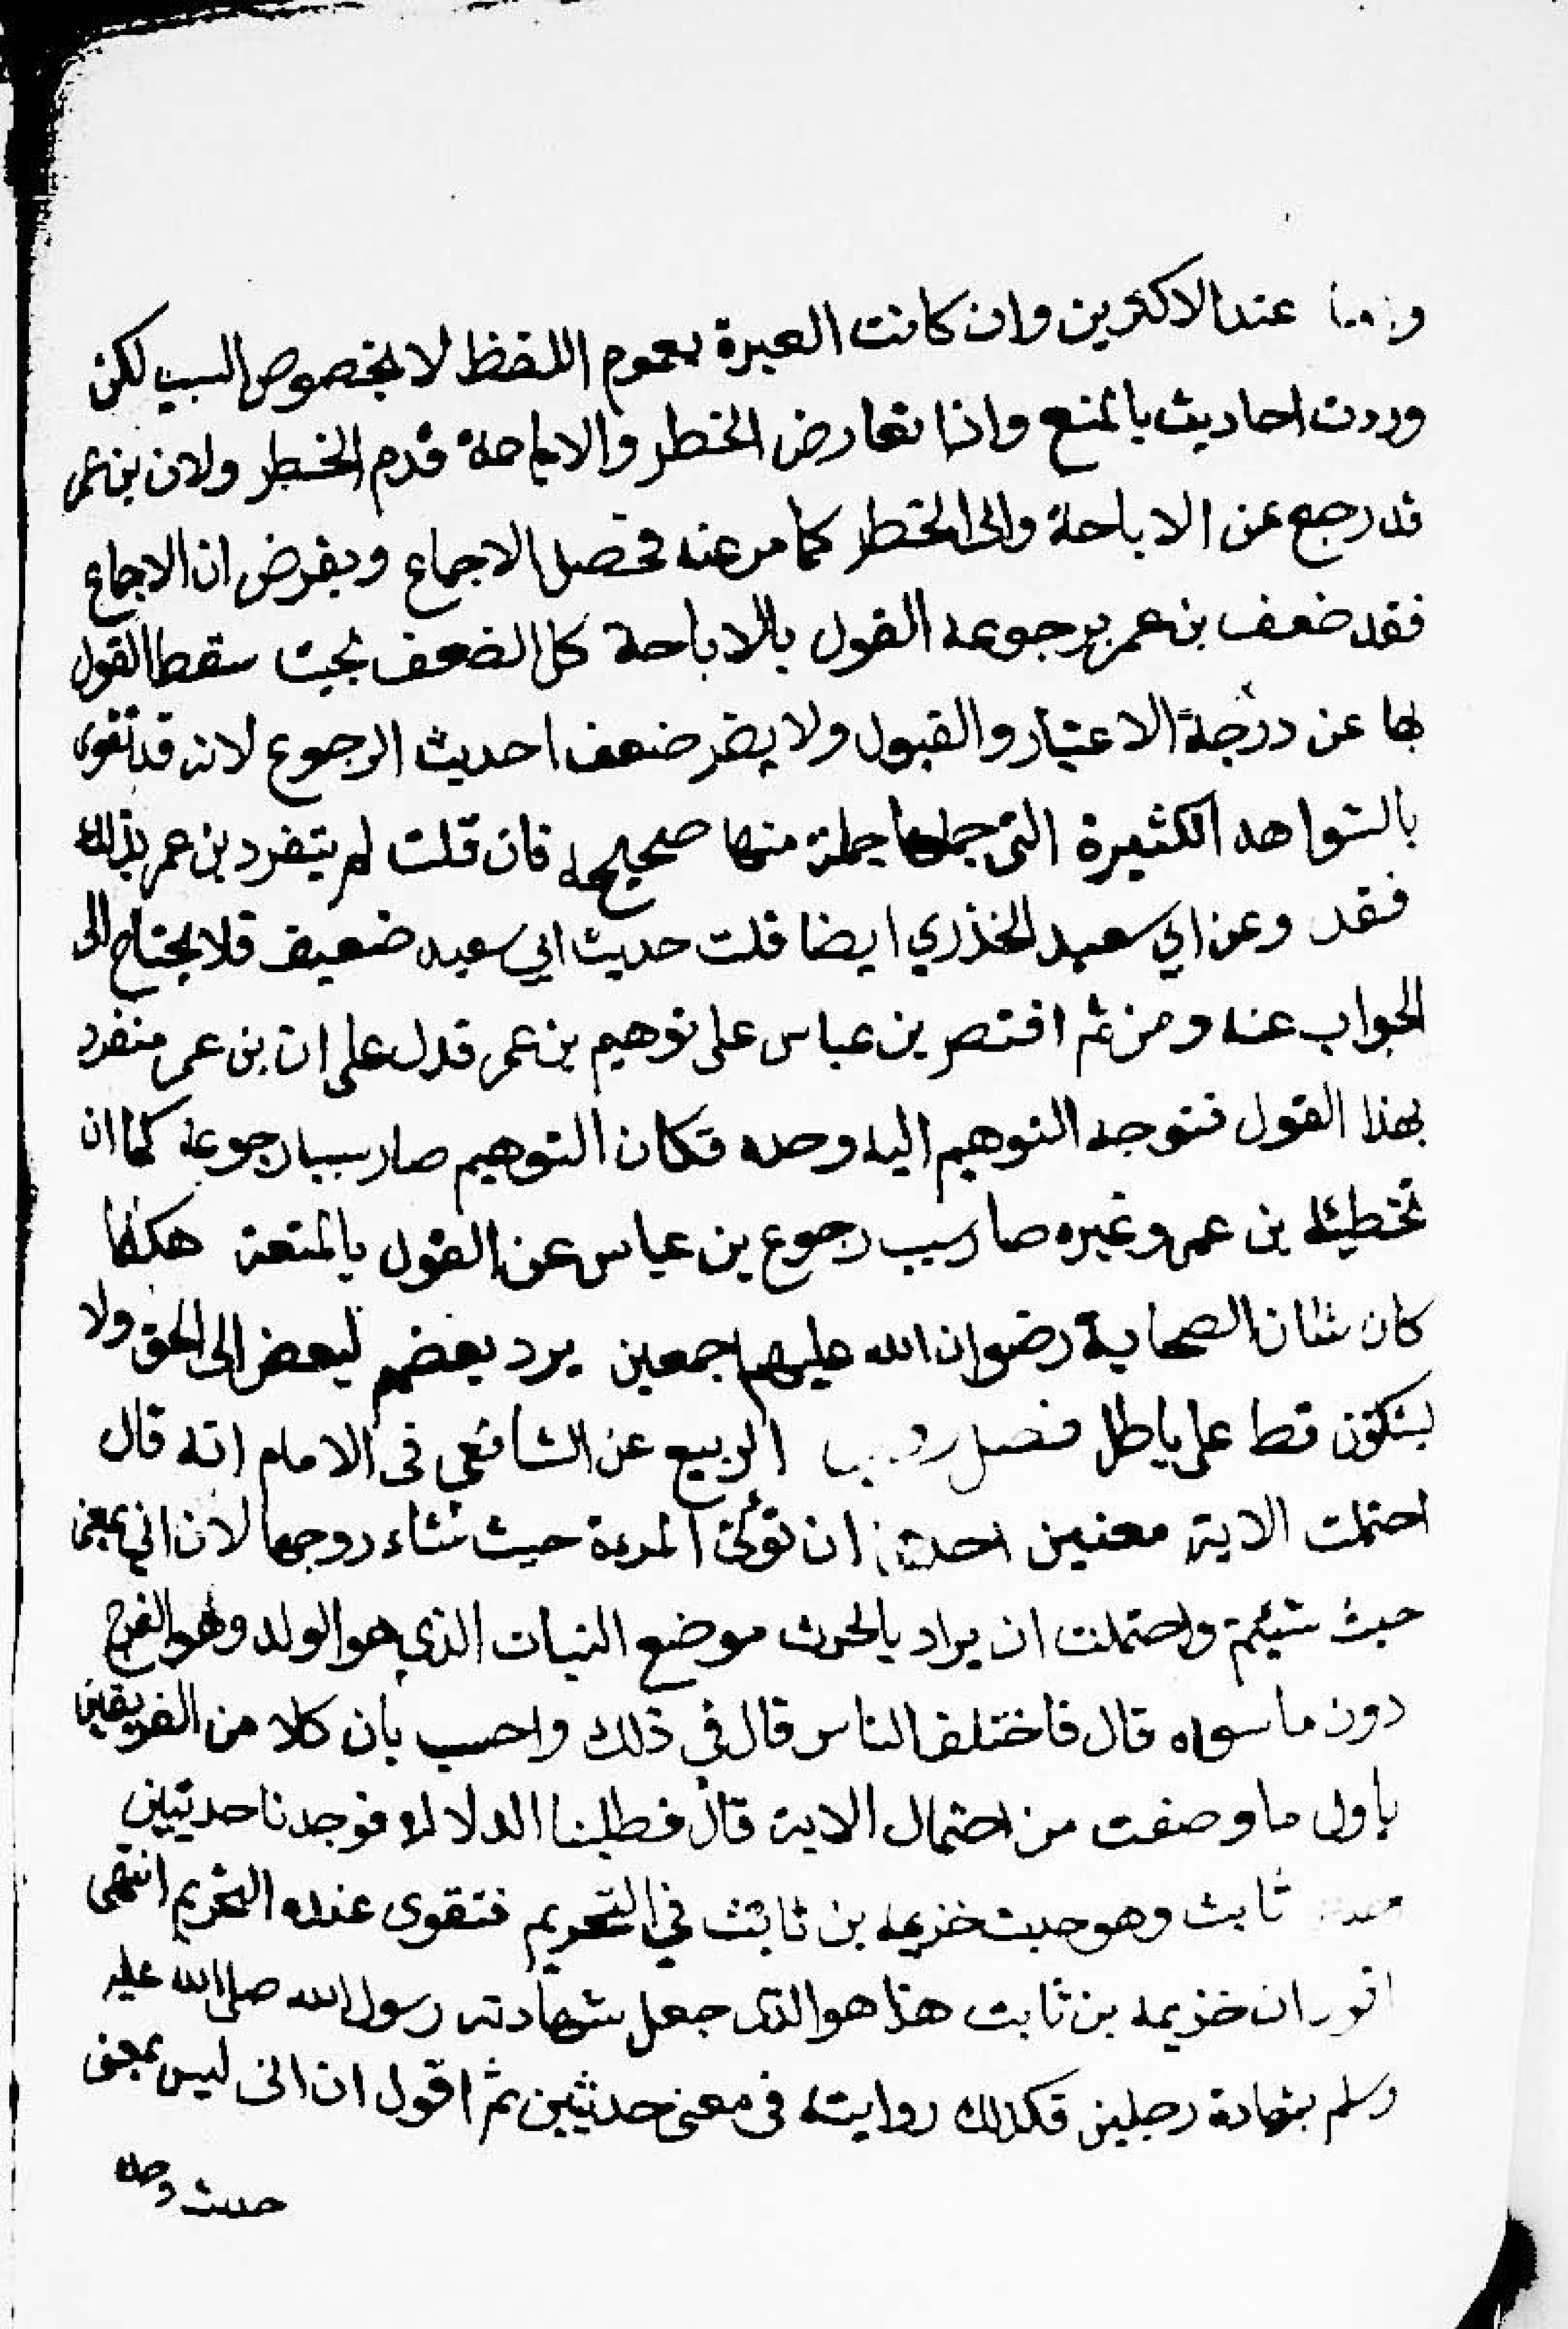 عند الاكثرين وان كانت العبرة بعموم اللفظ لا بخصوص السبب لكن
وردت احاديث بالمنع واذا تعارض الخطر والاباحة قدم الخطر ولان بن عمر
قد رجع عن الاباحة والى الخطر كما مر عنه فحصل الاجماع وبفرض ان الاجماع
فقد ضعف بن عمر برجوعه القول بالاباحة كل الضعف بحيث سقط القول
بها عن درجة الاعتبار والقبول ولا يضر ضعف احديث الرجوع لانه قد تقوى
بالشواهد الكثيرة التى جملها جملة منها صحيحه فان قلت لم يتفرد بن عمر بذلك
فقد وعن ابي سعيد الخذري ايضا قلت حديث ابي سعيد ضعيف فلا يحتاج الى
الجواب عنه ومن ثم اقتصر بن عباس على توهيم بن عمر فدل على ان بن عمر منفرد
بهذا القول فتوجه التوهيم اليه وحده فكان التوهيم صار سببا رجوعه كما ان
تخطيئه بن عمر وغيره صار سبب رجوع بن عباس عن القول بالمتعة هكذا
كان شان الصحابة رضوان الله عليهم اجمعين يرد بعضهم لبعض الى الحق ولا
يسكتون قط على باطل فصل الربيع عن الشافعي فى الامام انه قال
احتملت الاية معنيين احدها ان تؤتى المرءة حيث شاء زوجها لان انى بمعنى
حيث شيئتم واحتملت ان يراد بالحرث موضع النبات الذي هو الولد وهو الفرج
دون ما سواه قال فاختلف الناس قال في ذلك واحسب بان كلا من الفريقين
ياول ما وصفت من احتمال الاية قال فطلبنا الدلالة فوجدنا حديثين
ثابت وهو حديث خزيمه بن ثابت في التحريم فتقوى عنده التحريم انتهى
ان خزيمه بن ثابت هذا هو الذى جعل شهادته رسول الله صلى الله عليه
وسلم بشهادة رجلين فكذلك روايته فى معنى حديثين ثم اقول ان انى ليس بمعنى
حيث وحده